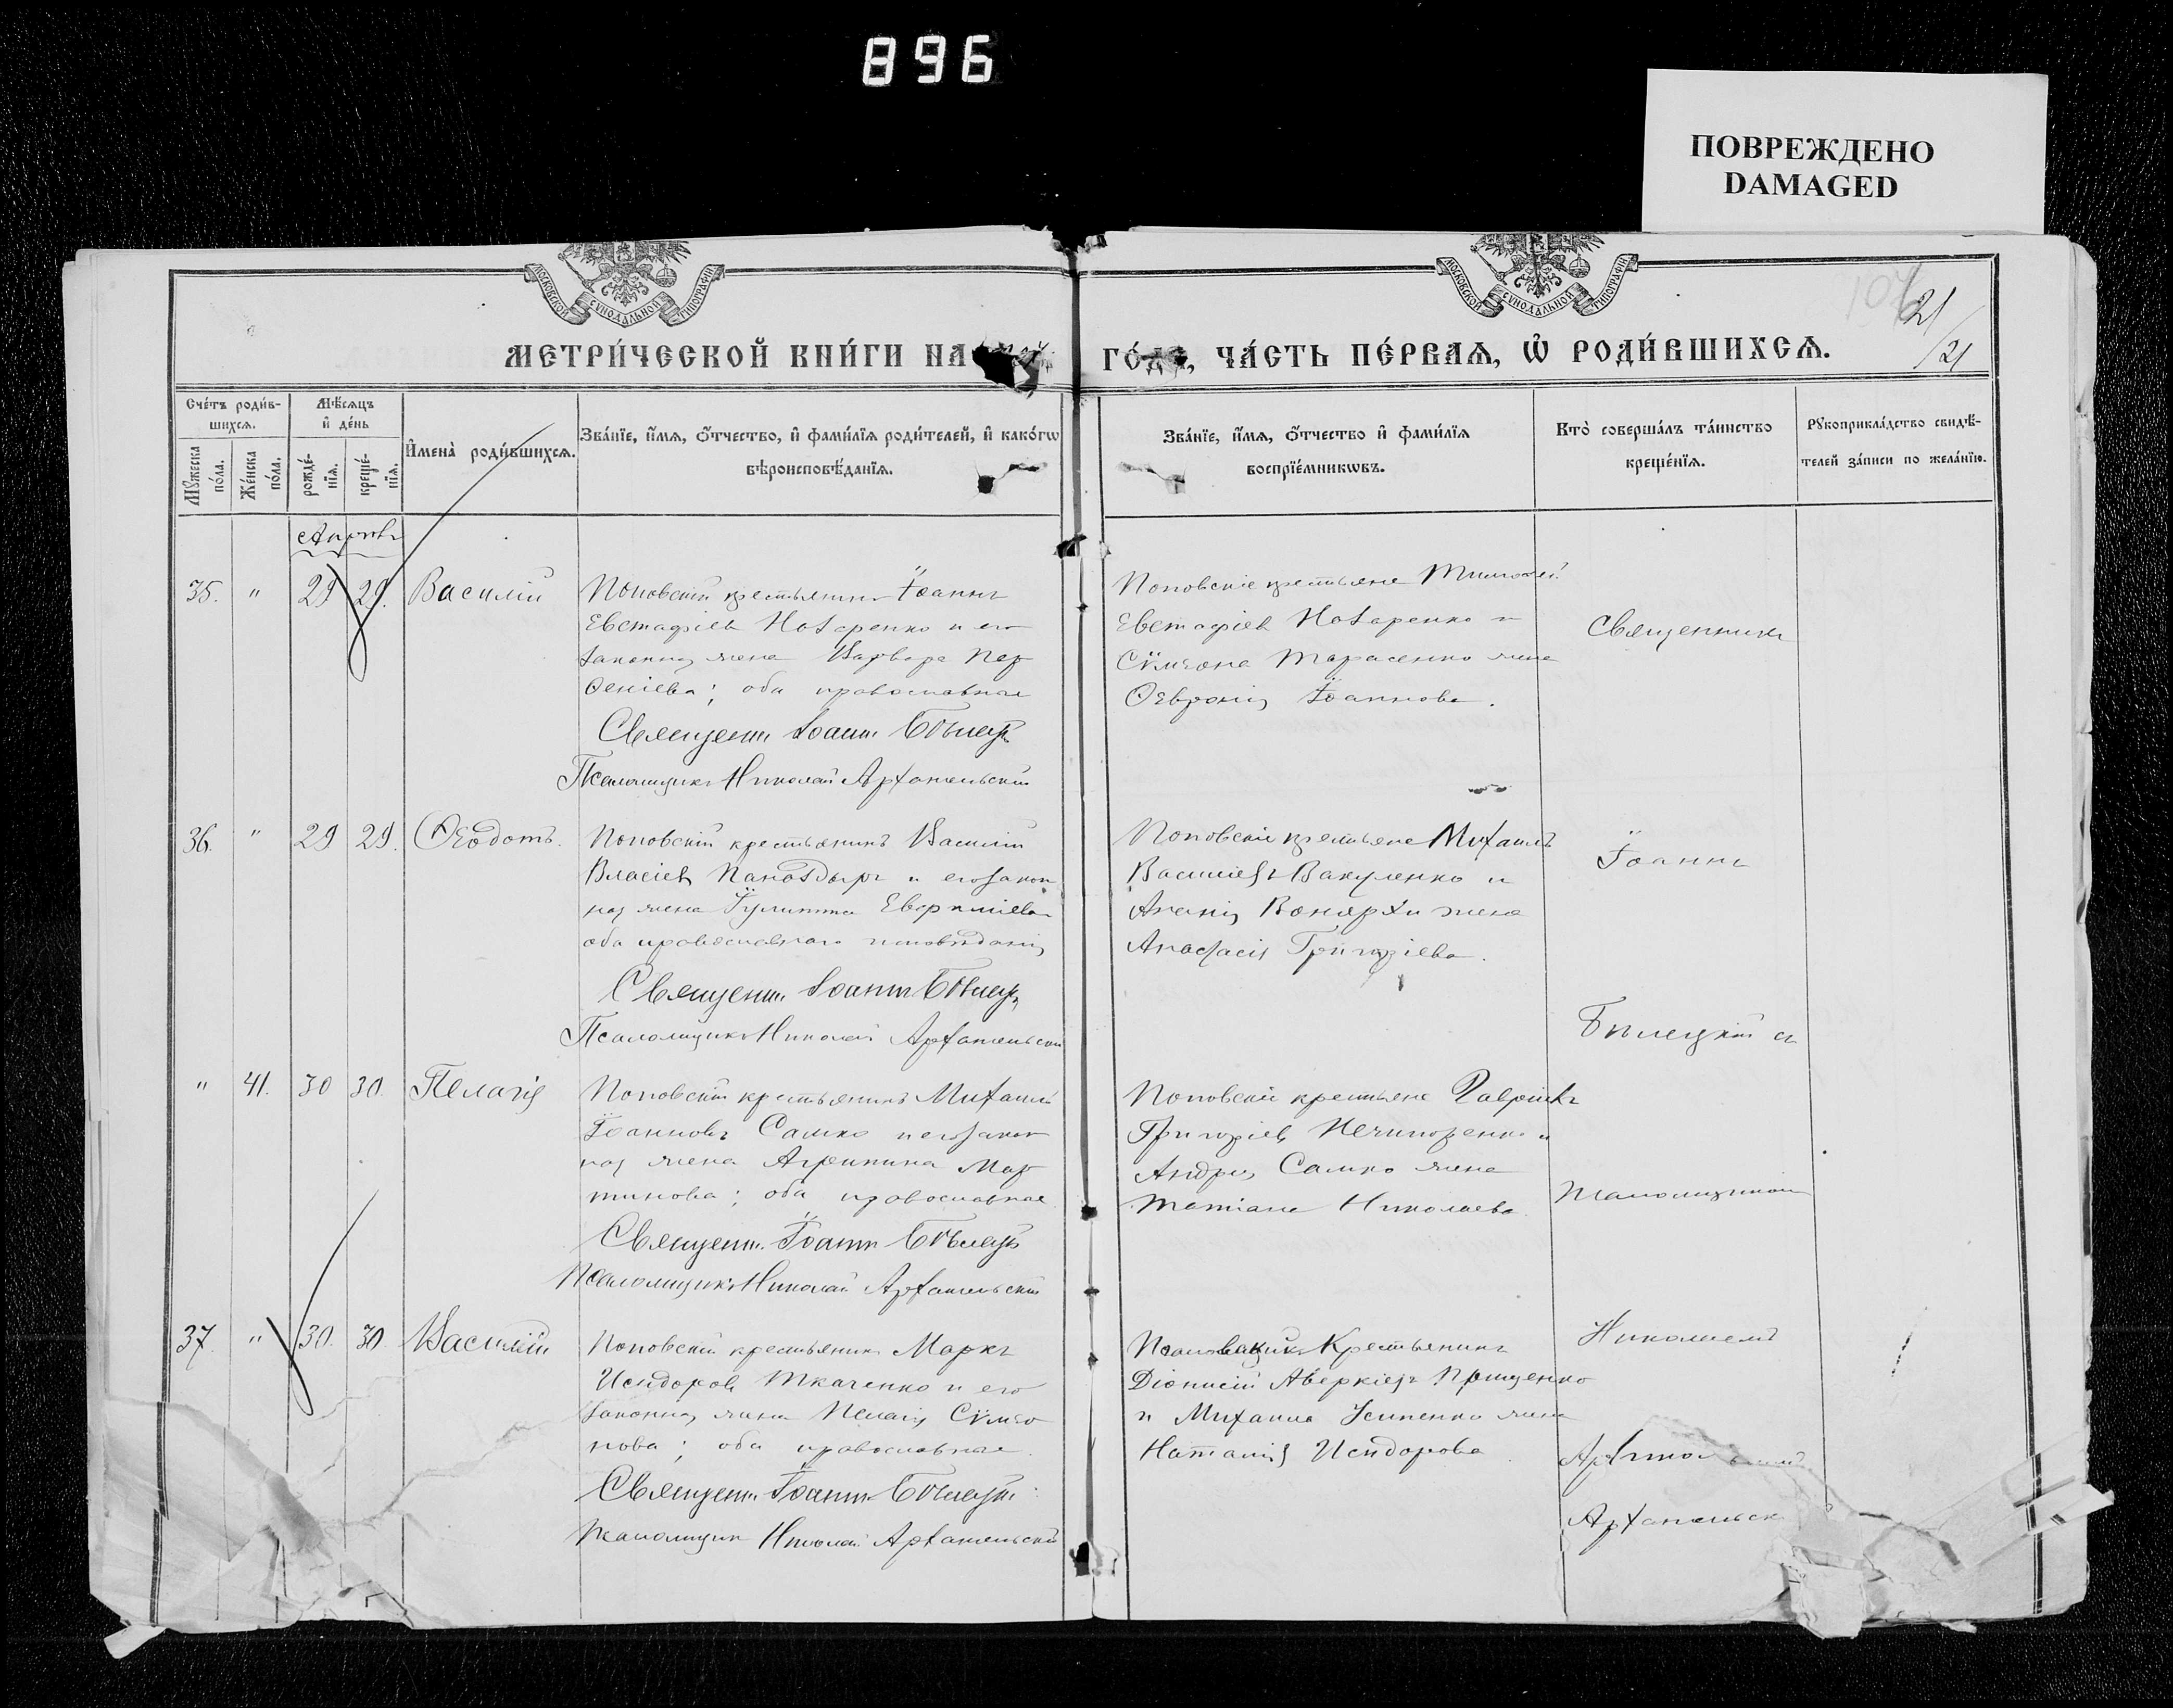 896
ПОВРЕЖДЕНО
DAMAGED
МОСКОВСКОЙ СѴНОДАЛЬНОЙ ТИПОГРАФІИ
МОСКОВСКОЙ СѴНОДАЛЬНОЙ ТИПОГРАФІИ
21
21
МЕТРИ́ЧЕСКОЙ КНИ́ГИ НА
ГО́ДА, ЧА́СТЬ ПЕ́РВАЯ, Ѿ РОДИ́ВШИХСЯ.
Сче́тъ роди́в-
шихся.
Мꙋжеска по́ла.
Же́нска по́ла.
Мѣ́сяцъ и҆ де́нь
рожде́-нїя.
креще́-нїя.
И҆мена̀ роди́вшихся.
Зва́нїе, и҆́мя, ѻ҆́тчество, и҆ фами́лїя роди́телей, и҆ како́гѡ
вѣроисповѣ́данїя.
Зва́нїе, и҆́мя, ѻ҆́тчество и҆ фами́лїя
воспрїе́мникѡвъ.
Кто̀ соверша́лъ та́инство
креще́нїя.
Рꙋкоприкла́дство свидѣ́-
телей за́писи по жела́нїю.
Апрѣль
35. " 29 29. Василій
Поповскій крестьянинъ Іоаннъ
Евстафіевъ Назаренко и его
законная жена Варвара Пар
ѳеніева; оба православные
Священникъ Іоаннъ Бѣлецкій
Псаломщикъ Николай Архангельскій
Поповскіе крестьяне Тимоѳей
Евстафіевъ Назаренко и
Сѵмеона Тарасенко жена
Ѳевронія Іоаннова.
Священникъ
36. " 29 29. Ѳеодотъ.
Поповскій крестьянинъ Василій
Власіевъ и его закон
ная жена Іулитта
оба православнаго исповѣданія
Священникъ Іоаннъ Бѣлецкій
Псаломщикъ Николай Архангельскій
Поповскіе крестьяне Михаилъ
Васильевъ Вакуленко и
жена
Анастасія Григоріева.
Іоаннъ
Бѣлецкій съ
" 41. 30 30. Пелагія
Поповскій крестьянинъ Михаилъ
Іоанновъ Самко и его закон
ная жена Агрипина Мар
тинова; оба православные
Священникъ Іоаннъ Бѣлецкій
Псаломщикъ Николай Архангельскій
Поповскіе крестьяне Гавріилъ
Григоріевъ Нечипоренко и
Андрея Самко жена
Татіана Николаева.
Псаломщикомъ
37. " 30. 30 Василій
Поповскій крестьянинъ Маркъ
Исидоровъ Ткаченко и его
законная жена Пелагія Сѵмео
нова; оба православные.
Священникъ Іоаннъ Бѣлецкій
Псаломщикъ Николай Архангельскій
Крестьянинъ
Діонисій Аверкіевъ
и Михаила Усипенко жена
Наталія Исидорова
Николаемъ
Архангельск